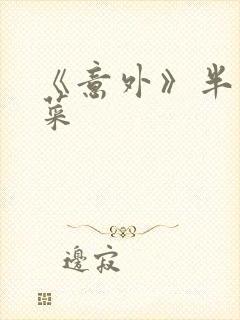 《意外》半
菜
邊寂